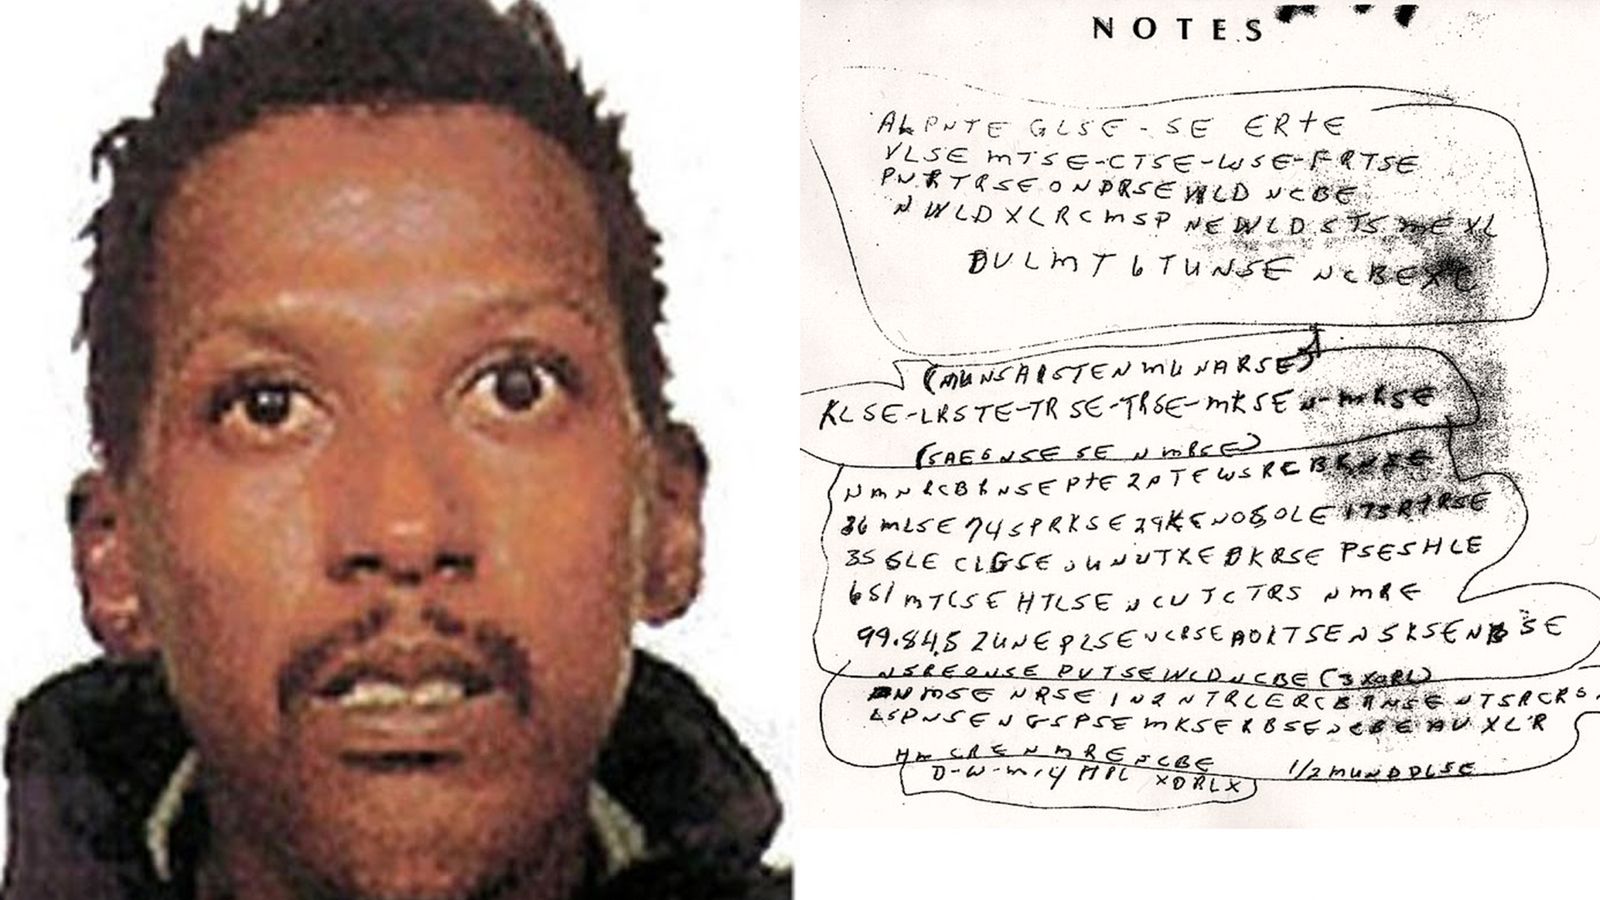 NOTES
ALPNTE GLSE - SE ERTE
VLSE MTSE-CTSE-WSE-FRTSE
PNRTRSE ONDRSE WLD NCBE
NWLDXLRCMSP NEWLD STS ME XL
DULMT 6 TUNSE NCBE XC
(MUNSAISTEN MU NARSE)
KLSE-LRSTE-TRSE-TRSE-MKSEN-MRSE
(SAEGNSE SE N MRSE)
NMNRCBRNSE PTE 2PTE WSRCBRNSE
36 MLSE 74 SPRKSE 29KENOSOLE 173 RTRSE
35 GLE CLGSE OUNUTXE DKRSE PSESHLE
651 MTCSE HTLSE NCUTCTRS NMRE
99.84.5 2UNE PLSE NCRSE AOLTSE NSKSE NBSE
NSREONSE PUTSE WLD NCBE (3XORL)
NMSE NRSE IN2NTRLERCBRNSE NTSRCRS
LSPNSE NGSPSE MKSERBSE NCBE AU XL'R
HM CRE NMRE NCBE 1/2 MUNDDLSE
D-W-M-4 HPL XDRLX